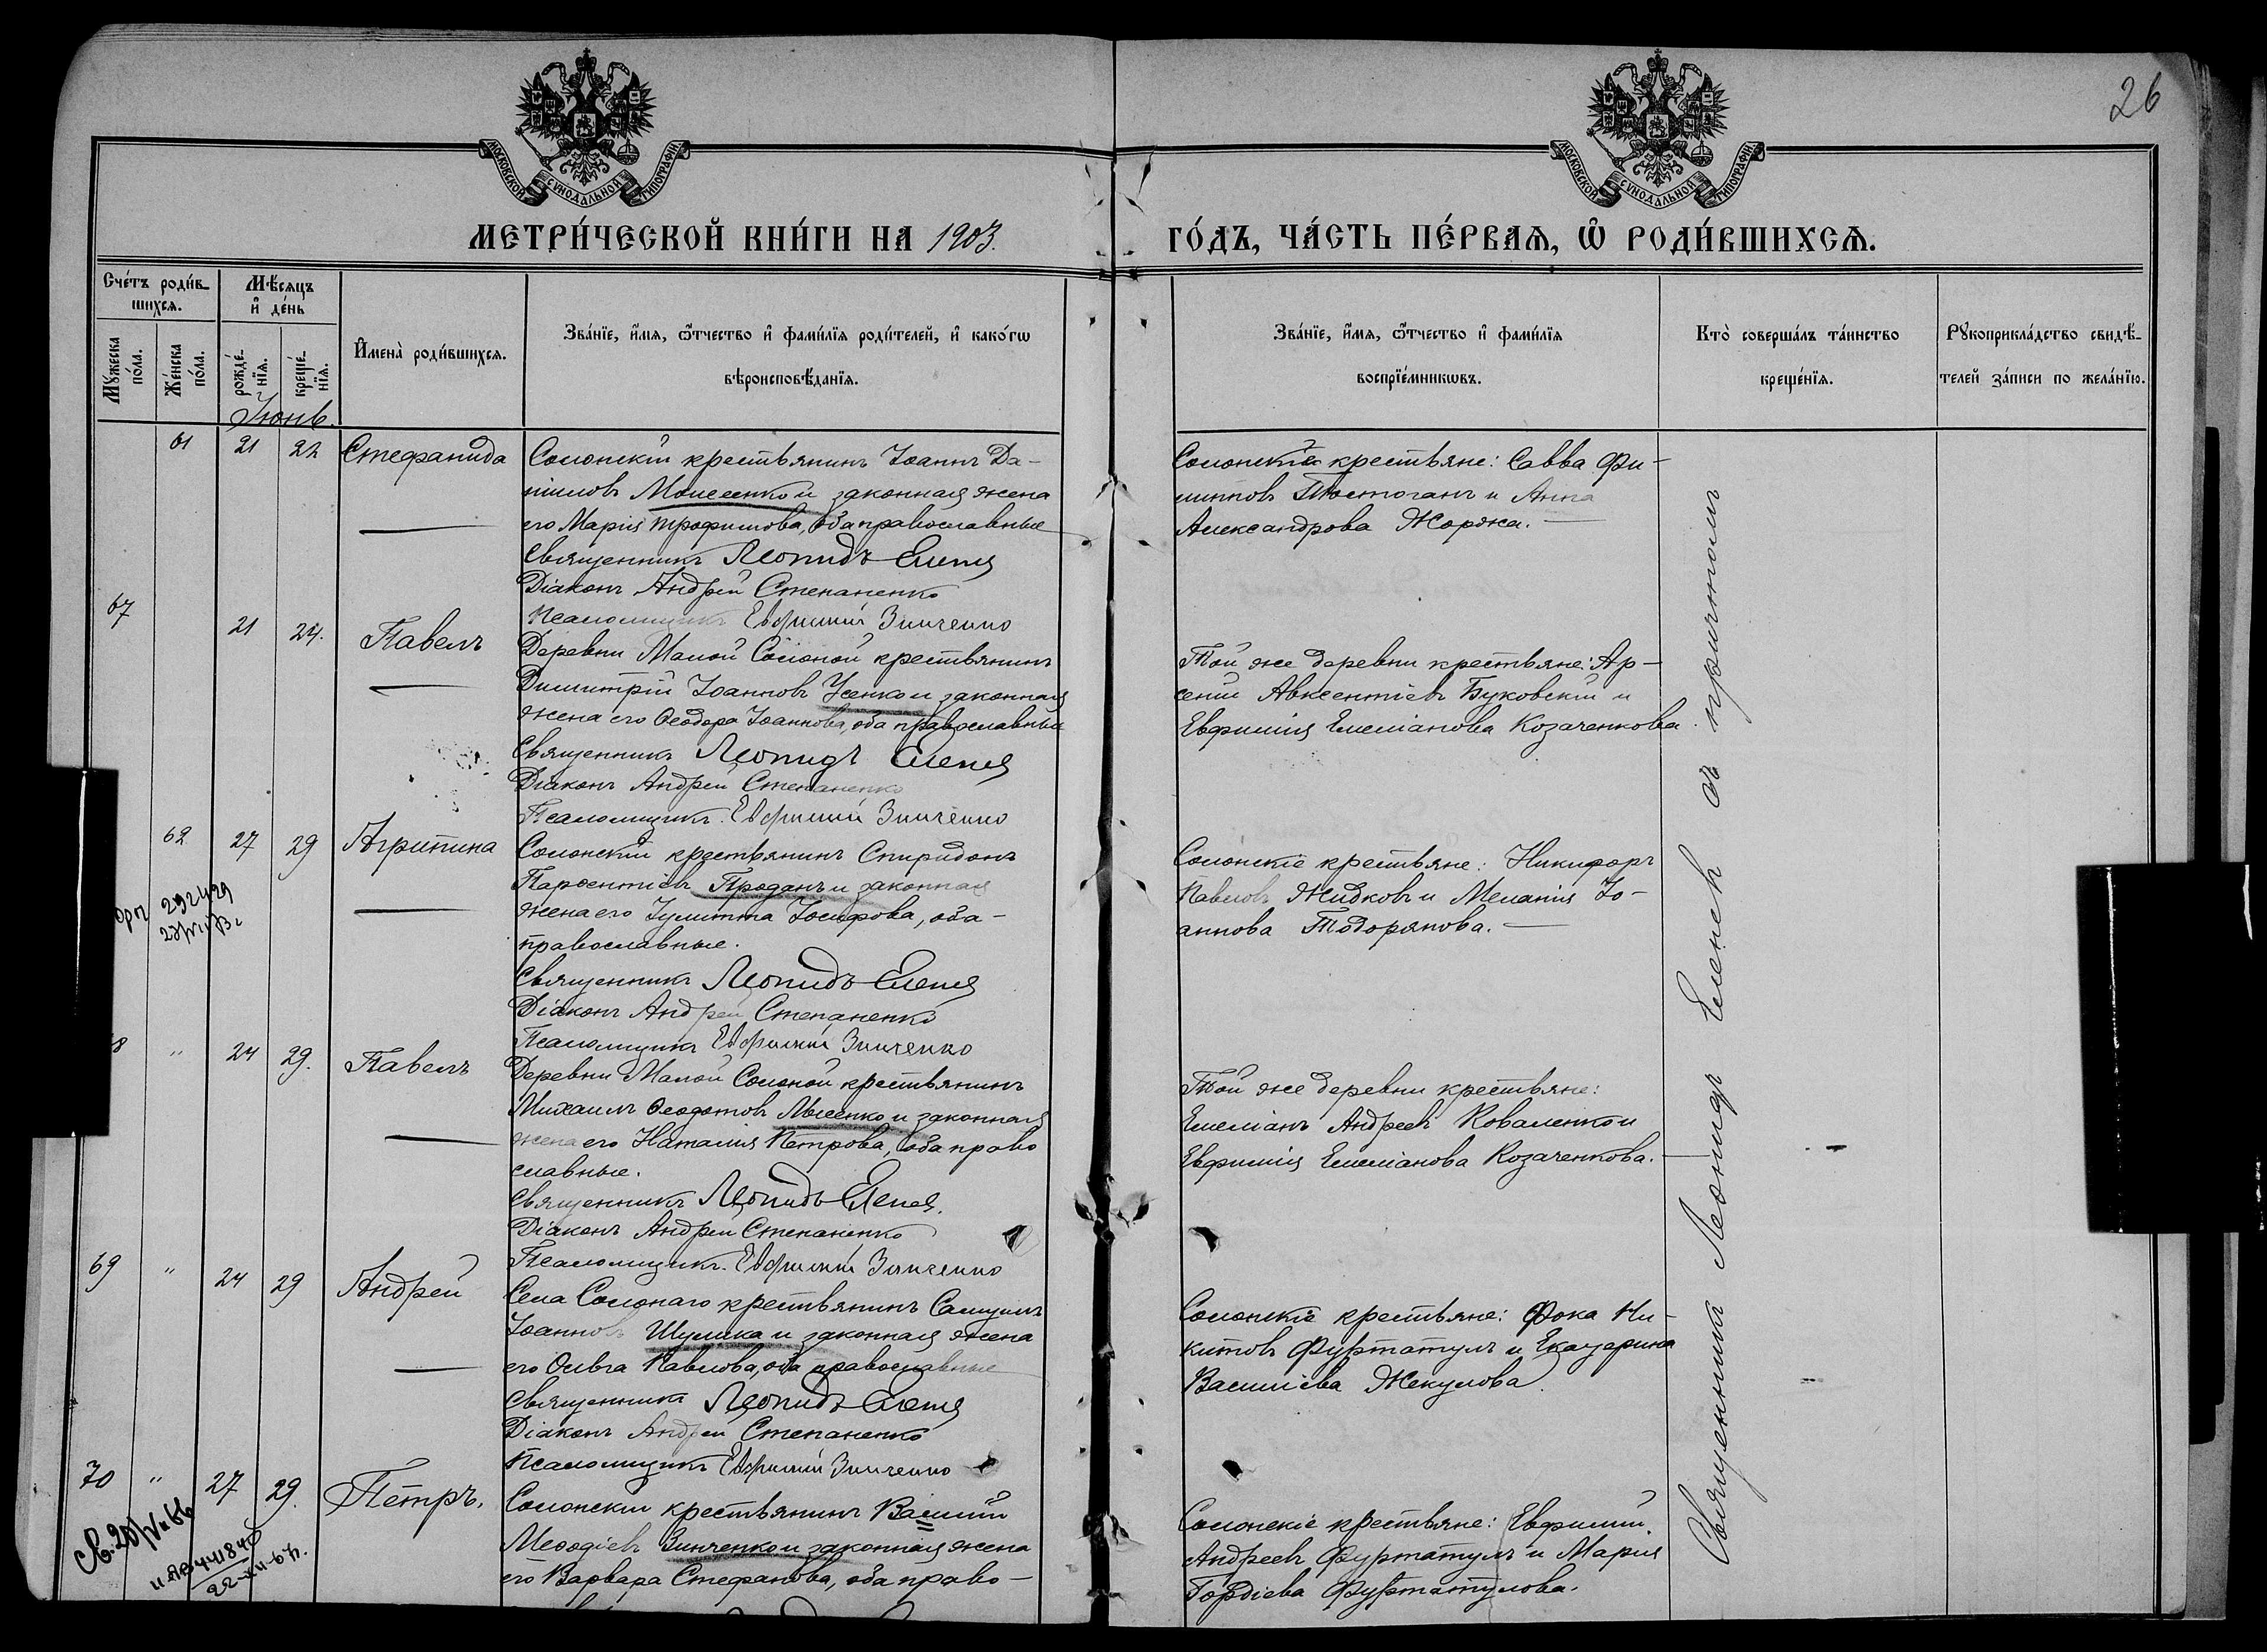 26
МОСКОВСКОЙ СѴНОДАЛЬНОЙ ТИПОГРАФІИ
МОСКОВСКОЙ СѴНОДАЛЬНОЙ ТИПОГРАФІИ
МЕТРИ́ЧЕСКОЙ КНИ́ГИ НА 1903.
ГО́ДЪ, ЧА́СТЬ ПЕ́РВАѦ, Ѽ РОДИ́ВШИХСѦ.
Сче́тъ роди́вшихсѧ.
Мꙋ́жеска по́ла.
Же́нска по́ла.
Мѣ́сѧцъ и҆ де́нь
рожде́нїѧ.
креще́нїѧ.
И҆мена̀ роди́вшихсѧ.
Зва́нїе, и҆́мѧ, ѻ҆́тчество и҆ фами́лїѧ роди́телей, и҆ како́гѡ
вѣроисповѣ́данїѧ.
Зва́нїе, и҆́мѧ, ѻ҆́тчество и҆ фами́лїѧ
воспрїе́мникѡвъ.
Кто̀ соверша́лъ та́инство
креще́нїѧ.
Рꙋкоприкла́дство свидѣ́-
телей за́писи по жела́нїю.
Іюнь.
61 21 22 Стефанида
Солонскій крестьянинъ Іоаннъ Да-
ниловъ Моисеенко и законная жена
его Марія Трофимова, оба православные
Священникъ Леонидъ Еленев
Діаконъ Андрей Степаненко
Псаломщикъ Евфимій Зинченко
Солонскіе крестьяне: Савва Фи-
липповъ Постоганъ и Анна
Александрова Жоржа.
67 21 24. Павелъ
Деревни Малой Солоной крестьянинъ
Димитрій Іоанновъ Усенко и законная
жена его Ѳеодора Іоаннова, оба православные
Священникъ Леонидъ Еленев
Діаконъ Андрей Степаненко
Псаломщикъ Евфимій Зинченко
Той же деревни крестьяне: Ар-
сеній Авксентіевъ Буковскій и
Евфимія Емеліанова Козаченкова.
62 27 29 Агрипина
Солонскій крестьянинъ Спиридонъ
Парѳентіевъ Проданъ и законная
жена его Іулитта Іосифова, оба
православные.
Священникъ Леонидъ Еленев
Діаконъ Андрей Степаненко
Псаломщикъ Евфимій Зинченко
Солонскіе крестьяне: Никифоръ
Павловъ Жидковъ и Меланія Іо-
аннова Тодорянова.
8 " 24 29. Павелъ
Деревни Малой Солоной крестьянинъ
Михаилъ Ѳеодотовъ Лысенко и законная
жена его Наталія Петрова, оба право
славные.
Священникъ Леонидъ Еленев.
Діаконъ Андрей Степаненко
Псаломщикъ Евфимій Зинченко
Той же деревни крестьяне:
Емеліанъ Андреевъ Коваленко и
Евфимія Емеліанова Козаченкова.
69 " 24 29 Андрей
Села Солонаго крестьянинъ Самуилъ
Іоанновъ Шулика и законная жена
его Ольга Павлова, оба православные
Священникъ Леонидъ Еленев
Діаконъ Андрей Степаненко
Псаломщикъ Евфимій Зинченко
Солонскіе крестьяне: Фока Ни-
китовъ Фуртатулъ и Екатерина
Василіева Жекулова.
70 " 27 29. Петръ.
Солонскій крестьянинъ Василій
Меѳодіевъ Зинченко и законная жена
его Варвара Стефанова, оба право-
Солонскіе крестьяне: Евфимій
Андреевъ Фуртатулъ и Марія
Гордіева Фуртатулова.
Священникъ Леонидъ Еленев съ причтомъ